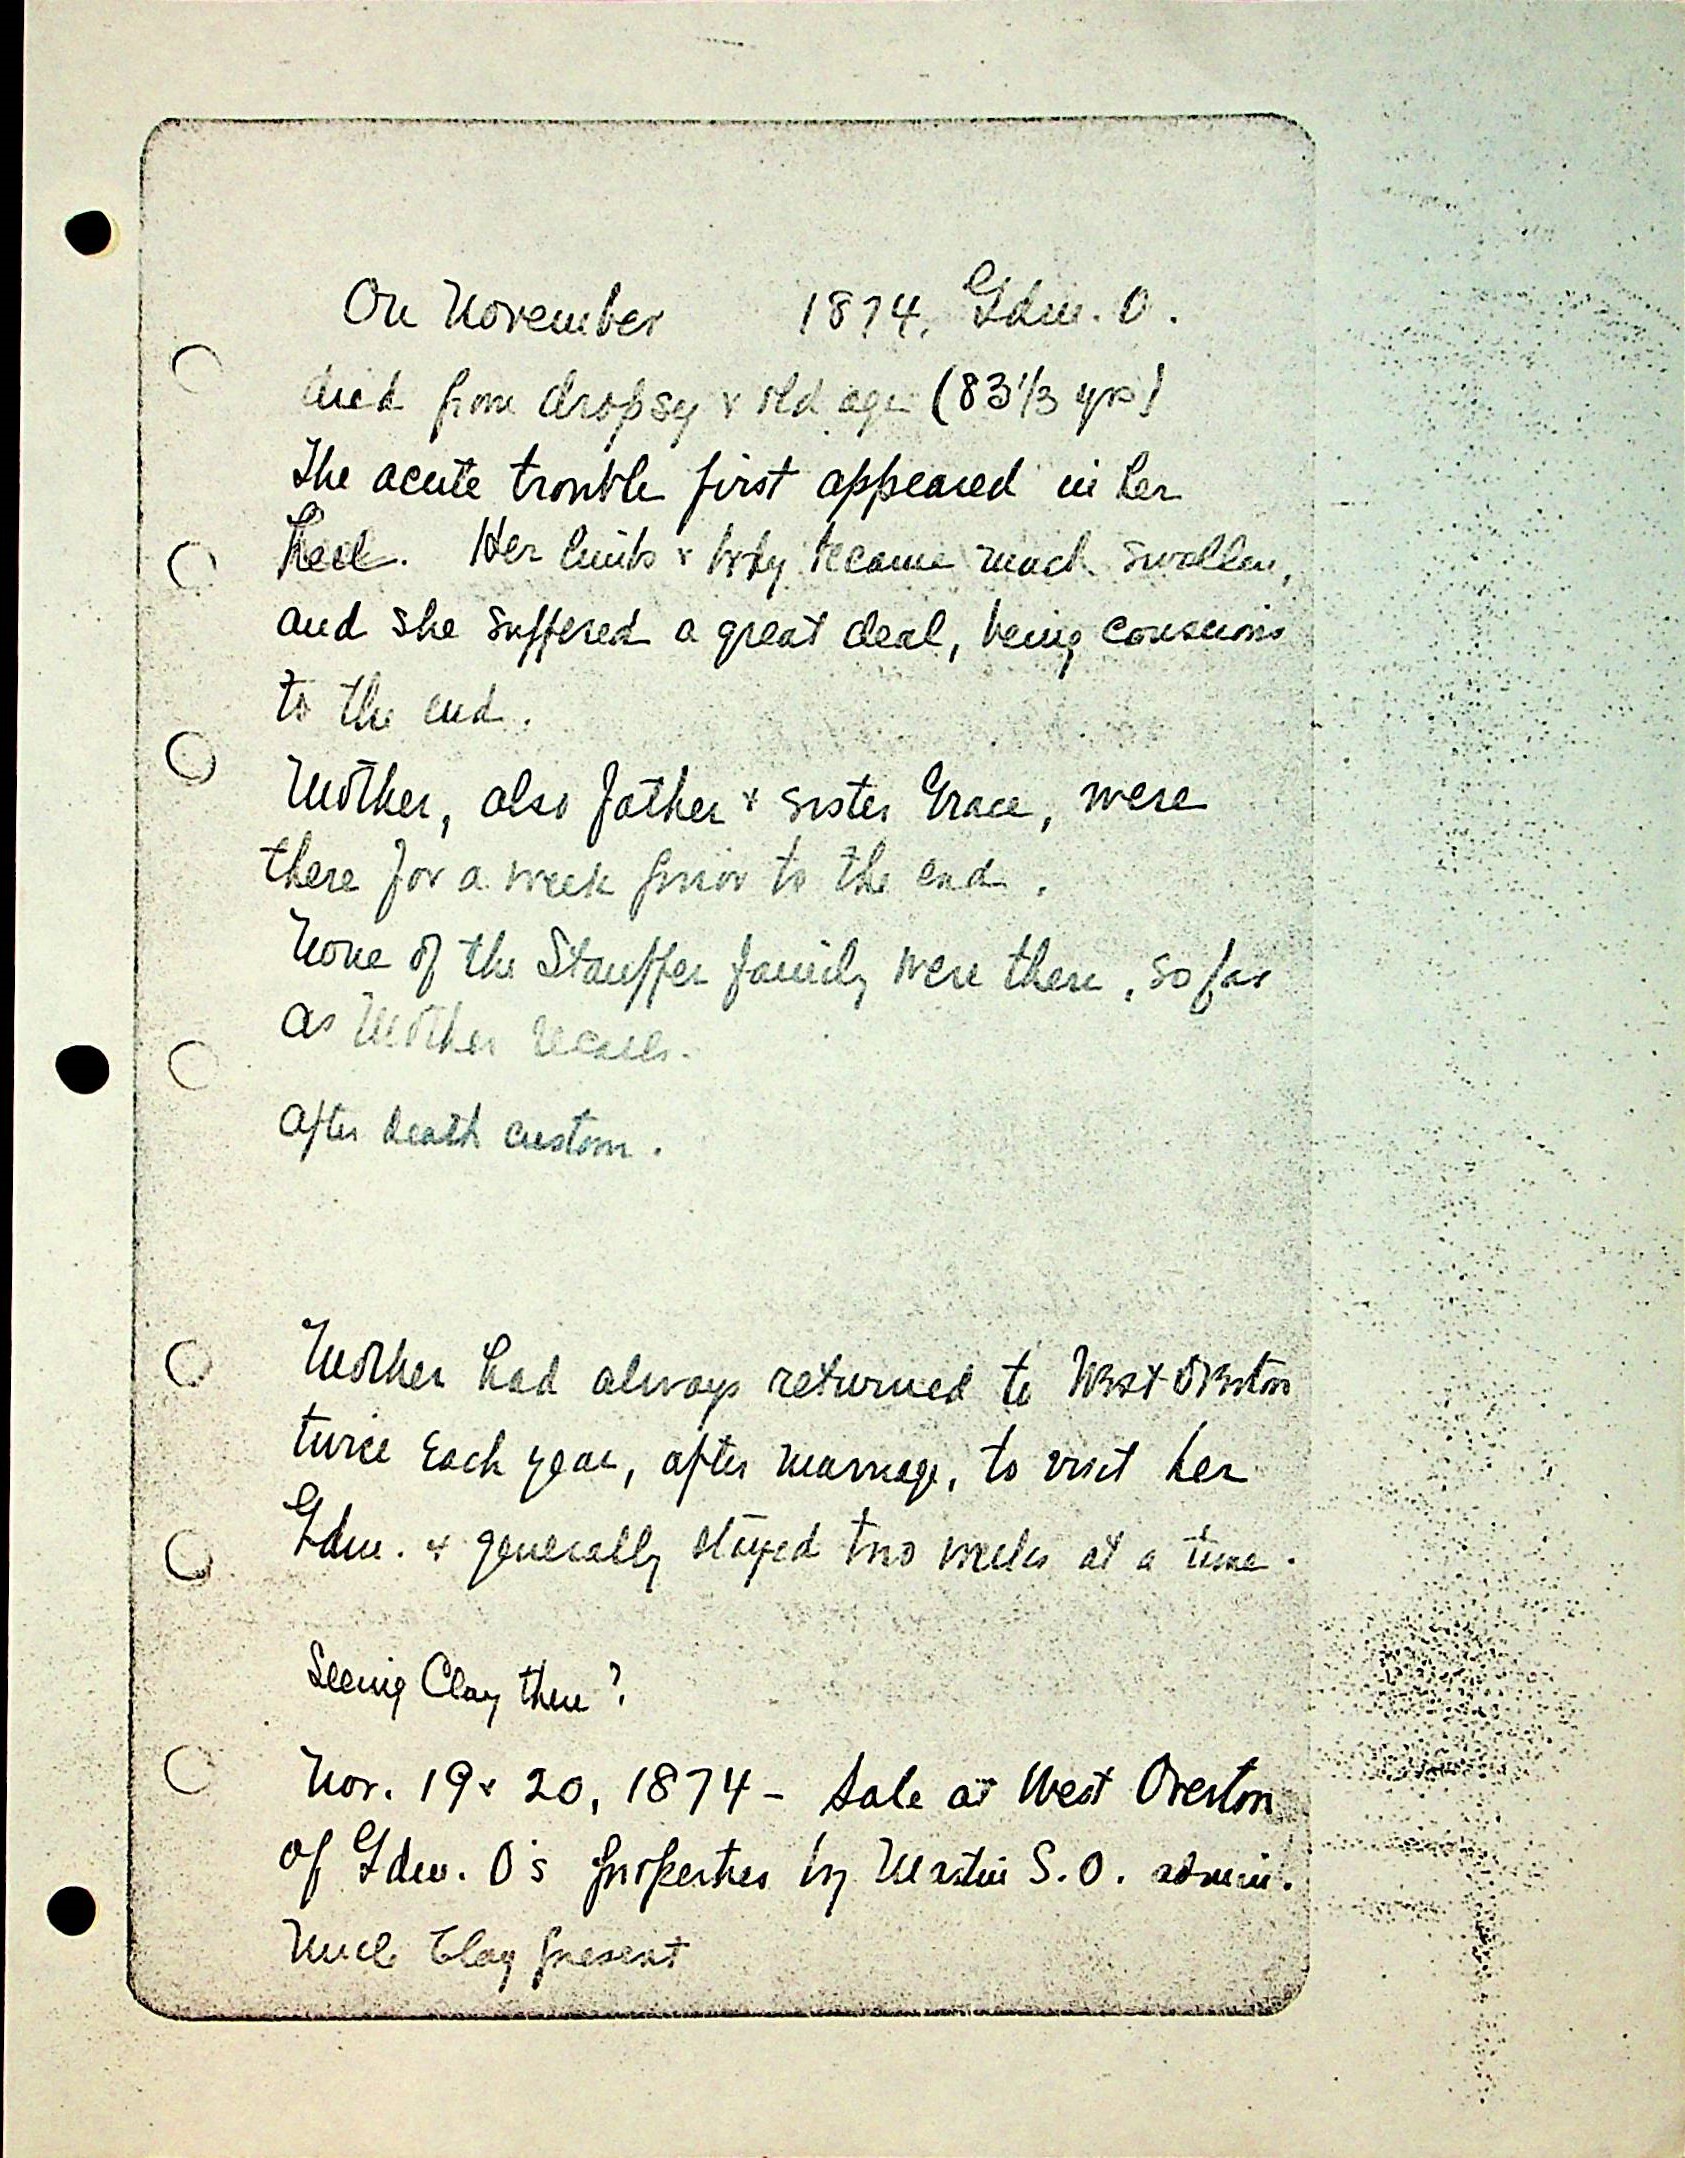 On November 1874, Gdm. O.
died from dropsy & old age (83 1/3 yrs)
The acute trouble first appeared in her
heel. Her limbs & body became much swollen,
and she suffered a great deal, being conscious
to the end.
Mother, also father & sister Grace, were
there for a week prior to the end.
None of the Stauffer family were there, so far
as Mother recalls.
After death custom.
Mother had always returned to West Overton
twice each year, after marriage, to visit her
Gdm. & generally stayed two weeks at a time.
Seeing Clay there?
Nov. 19 & 20, 1874 - Sale at West Overton
of Gdm. O's properties by Martin S. O. admin.
Uncle Clay present